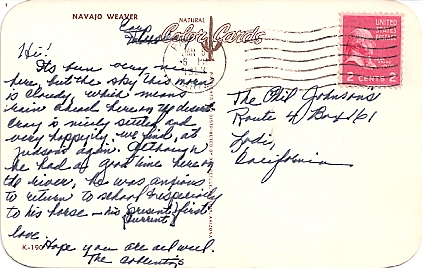 NAVAJO WEAVER
NATURAL
Color Cards
UNITED
STATES
POSTAGE
2 CENTS 2
Hi!
It's been very nice
here, but the sky this morn
is cloudy, which means
rain ahead here on ye desert.
Craig is nicely settled and
very happily, we find, at
Judsons again. Although
he had a good time here on
the river, he was anxious
to return to school & especially
to his horse — his {present} first
{current}
love
Hope you are all well.
The
The Phil Johnsons
Route 4 Box 1161
Lodi,
California
K-190